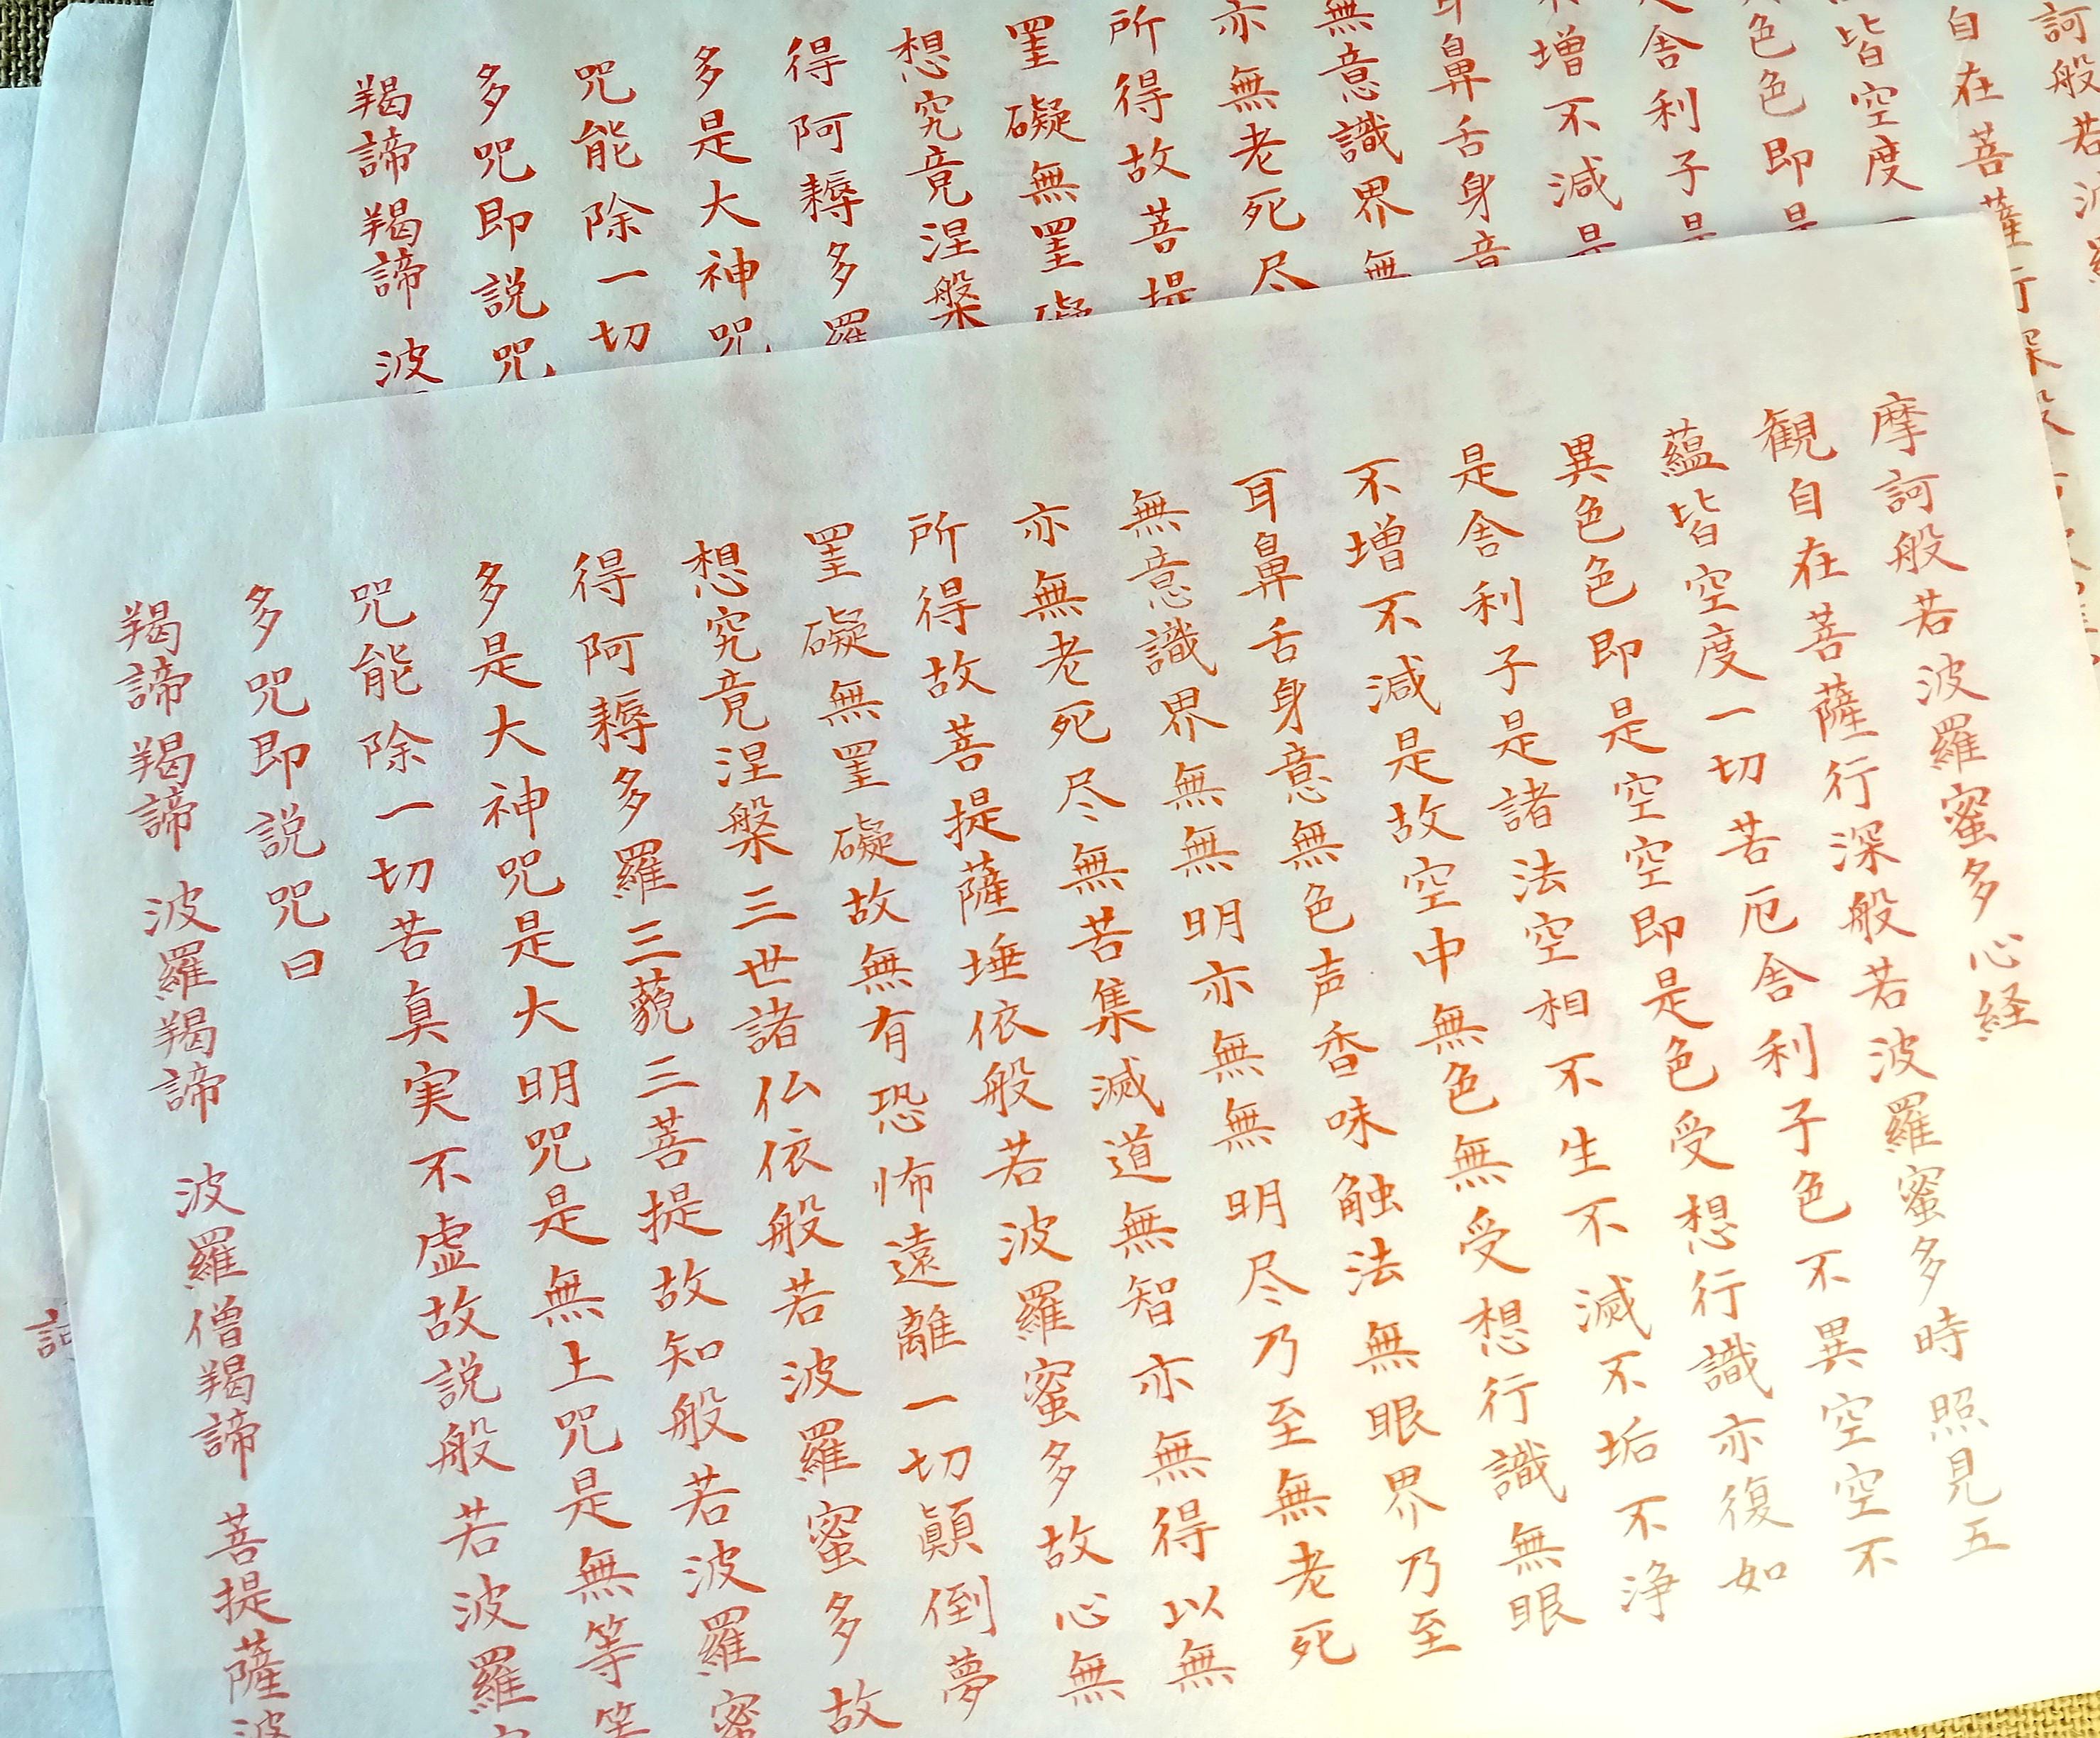 訶般若波羅
自在菩薩行深般
皆空度
色色即是
舎利子是
増不減是
耳鼻舌身意
無意識界無
亦無老死尽
所得故菩提
罣礙無罣礙
想究竟涅槃
得阿耨多羅
多是大神咒
咒能除一切
多咒即説咒
羯諦羯諦 波
摩訶般若波羅蜜多心経
観自在菩薩行深般若波羅蜜多時照見五
蘊皆空度一切苦厄舎利子色不異空空不
異色色即是空空即是色受想行識亦復如
是舎利子是諸法空相不生不滅不垢不浄
不増不減是故空中無色無受想行識無眼
耳鼻舌身意無色声香味触法無眼界乃至
無意識界無無明亦無無明尽乃至無老死
亦無老死尽無苦集滅道無智亦無得以無
所得故菩提薩埵依般若波羅蜜多故心無
罣礙無罣礙故無有恐怖遠離一切顚倒夢
想究竟涅槃三世諸仏依般若波羅蜜多故
得阿耨多羅三藐三菩提故知般若波羅蜜
多是大神咒是大明咒是無上咒是無等等
咒能除一切苦真実不虚故説般若波羅
多咒即説咒曰
羯諦羯諦 波羅羯諦 波羅僧羯諦 菩提薩波